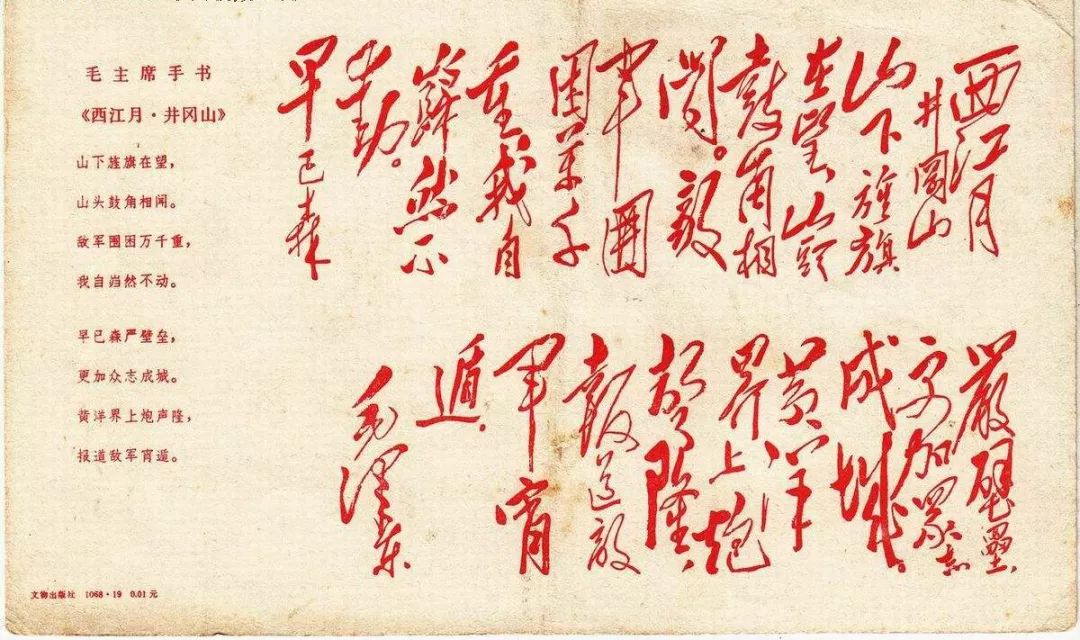 毛主席手书
《西江月·井冈山》
山下旌旗在望，
山头鼓角相闻。
敌军围困万千重，
我自岿然不动。
早已森严壁垒，
更加众志成城。
黄洋界上炮声隆，
报道敌军宵遁。
西江月
井岡山
山下旌旗
在望山頭
鼓角相
闻。敵
軍圍
困萬千
重，我自
巋然不
動。
早已森
嚴壁壘，
更加眾志
成城。
黄洋
界上炮
聲隆，
報道敵
軍宵
遁。
毛澤東
文物出版社 1068·19 0.01元